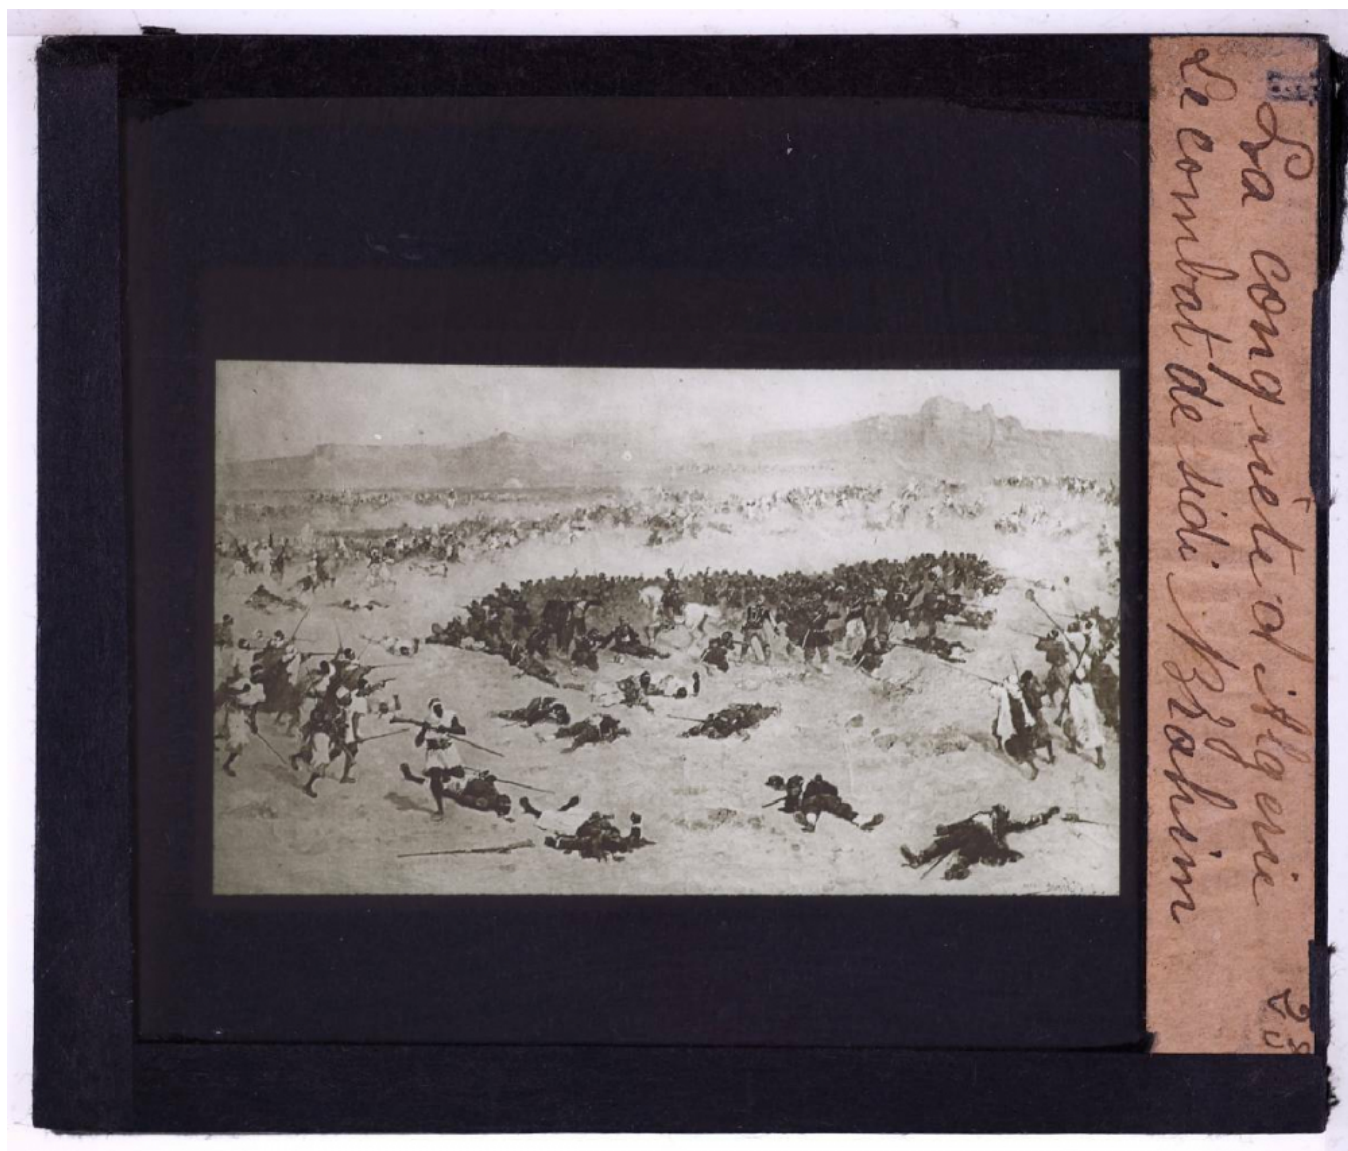 La conquête d'Algerie
Le combat de sidi Brahim